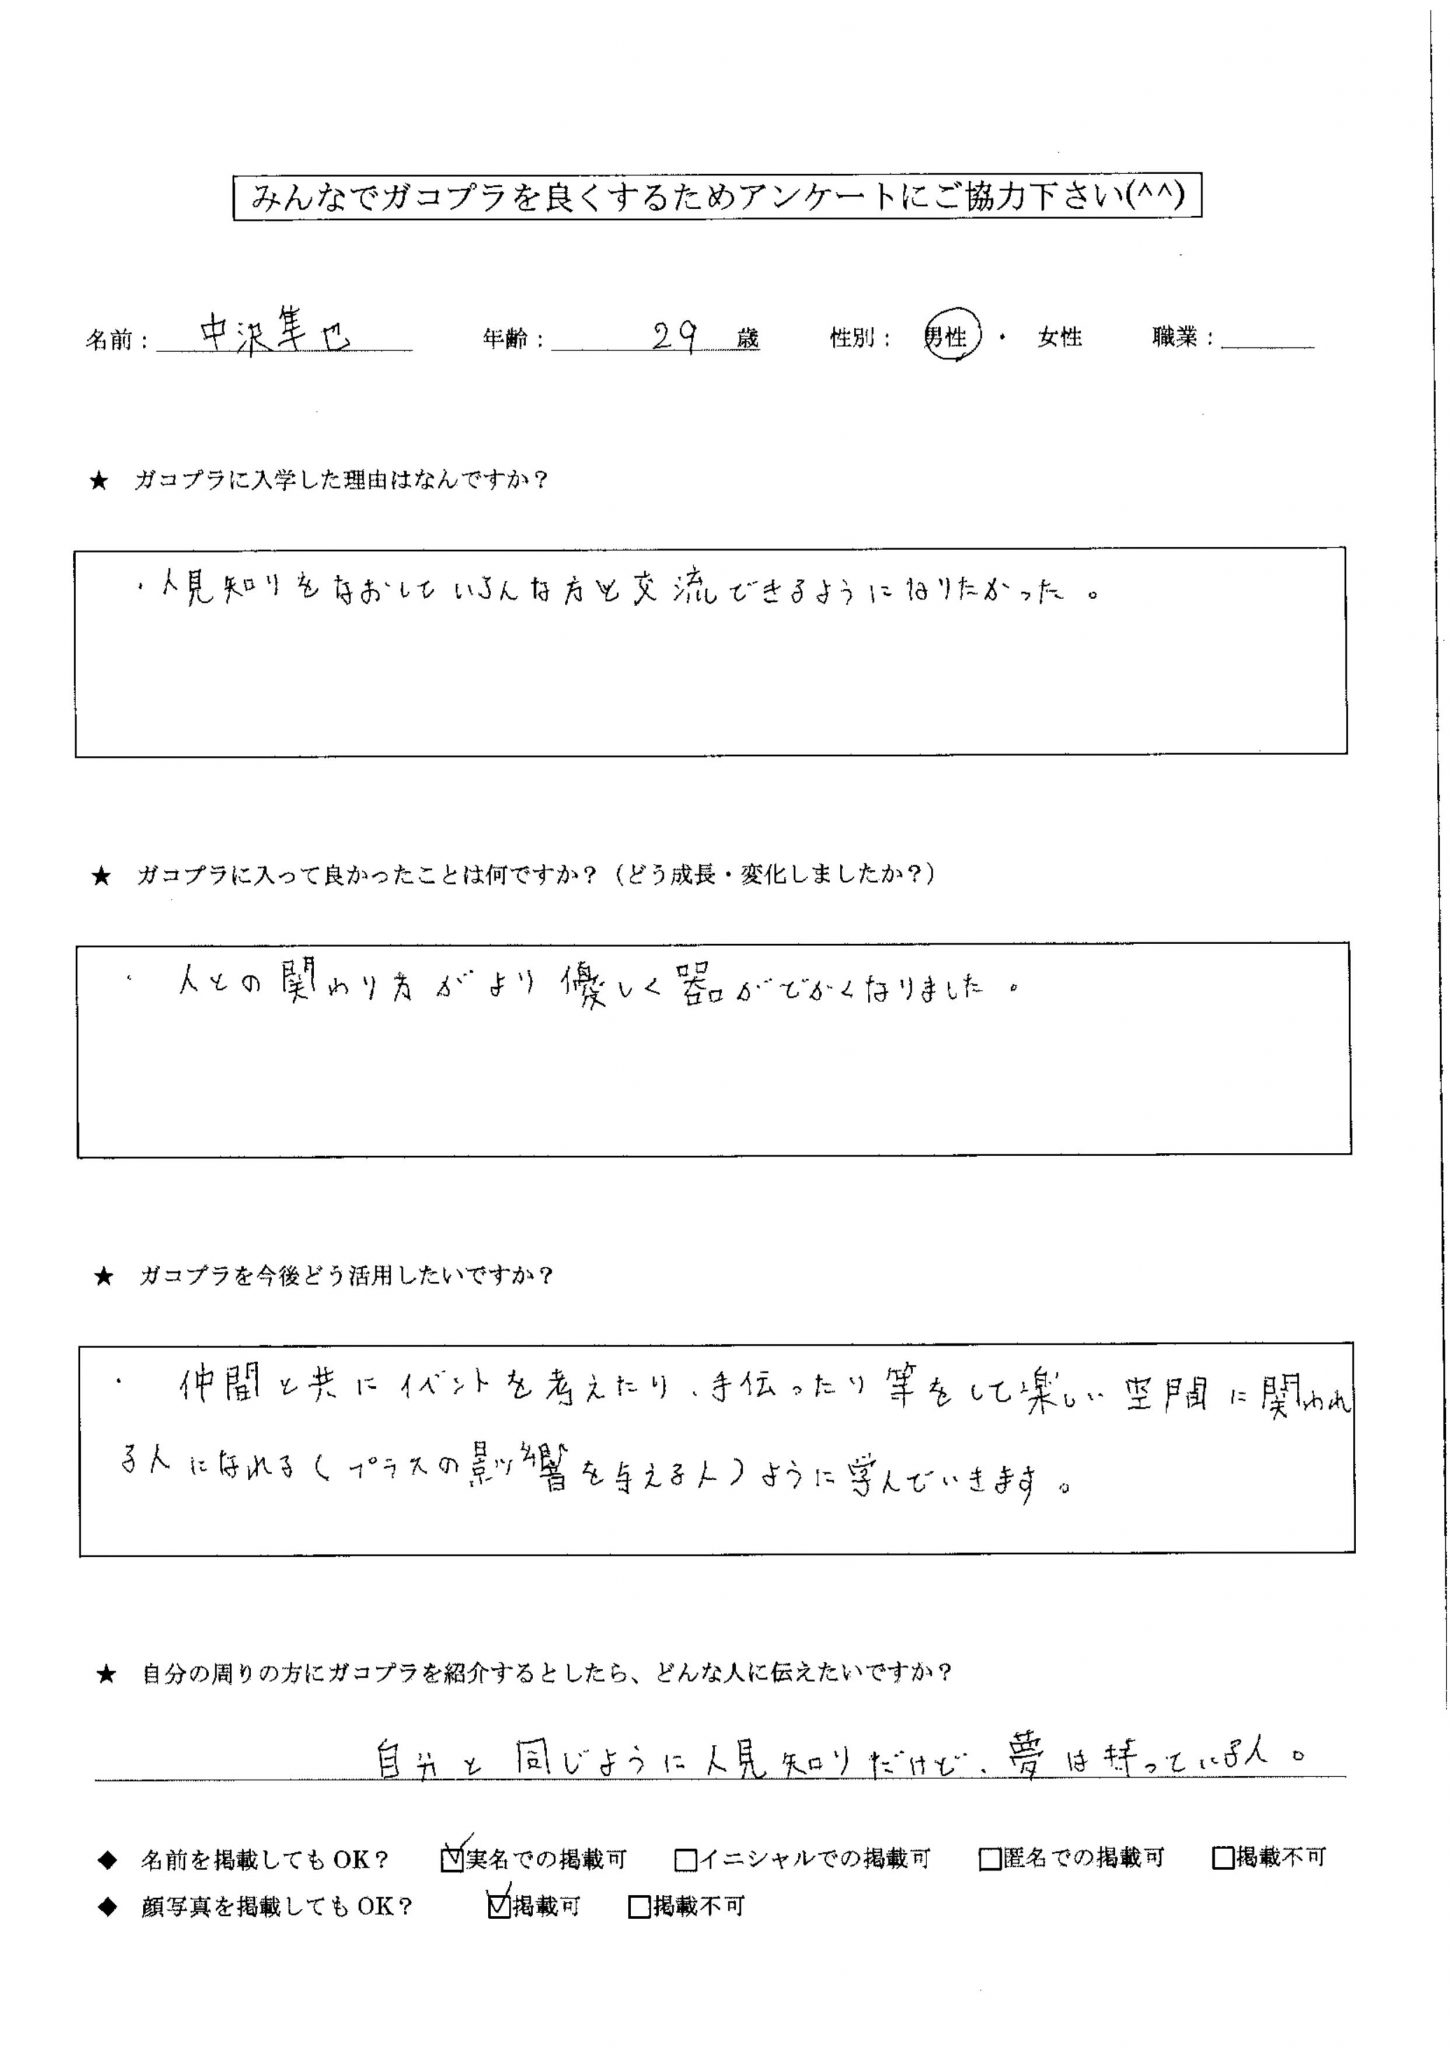 みんなでガコプラを良くするためアンケートにご協力下さい(^^)
名前： 中沢隼也 年齢： 29 歳 性別： 男性 ・ 女性 職業：
★ ガコプラに入学した理由はなんですか？
・人見知りをなおしていろんな方と交流できるようになりたかった。
★ ガコプラに入って良かったことは何ですか？（どう成長・変化しましたか？）
・ 人との関わり方がより優しく器がでかくなりました。
★ ガコプラを今後どう活用したいですか？
・ 仲間と共にイベントを考えたり、手伝ったり等をして楽しい空間に関われ
る人になれる（プラスの影響を与える人）ように学んでいきます。
★ 自分の周りの方にガコプラを紹介するとしたら、どんな人に伝えたいですか？
自分と同じように人見知りだけど、夢は持っている人。
◆ 名前を掲載してもOK？ ☑実名での掲載可 □イニシャルでの掲載可 □匿名での掲載可 □掲載不可
◆ 顔写真を掲載してもOK？ ☑掲載可 □掲載不可